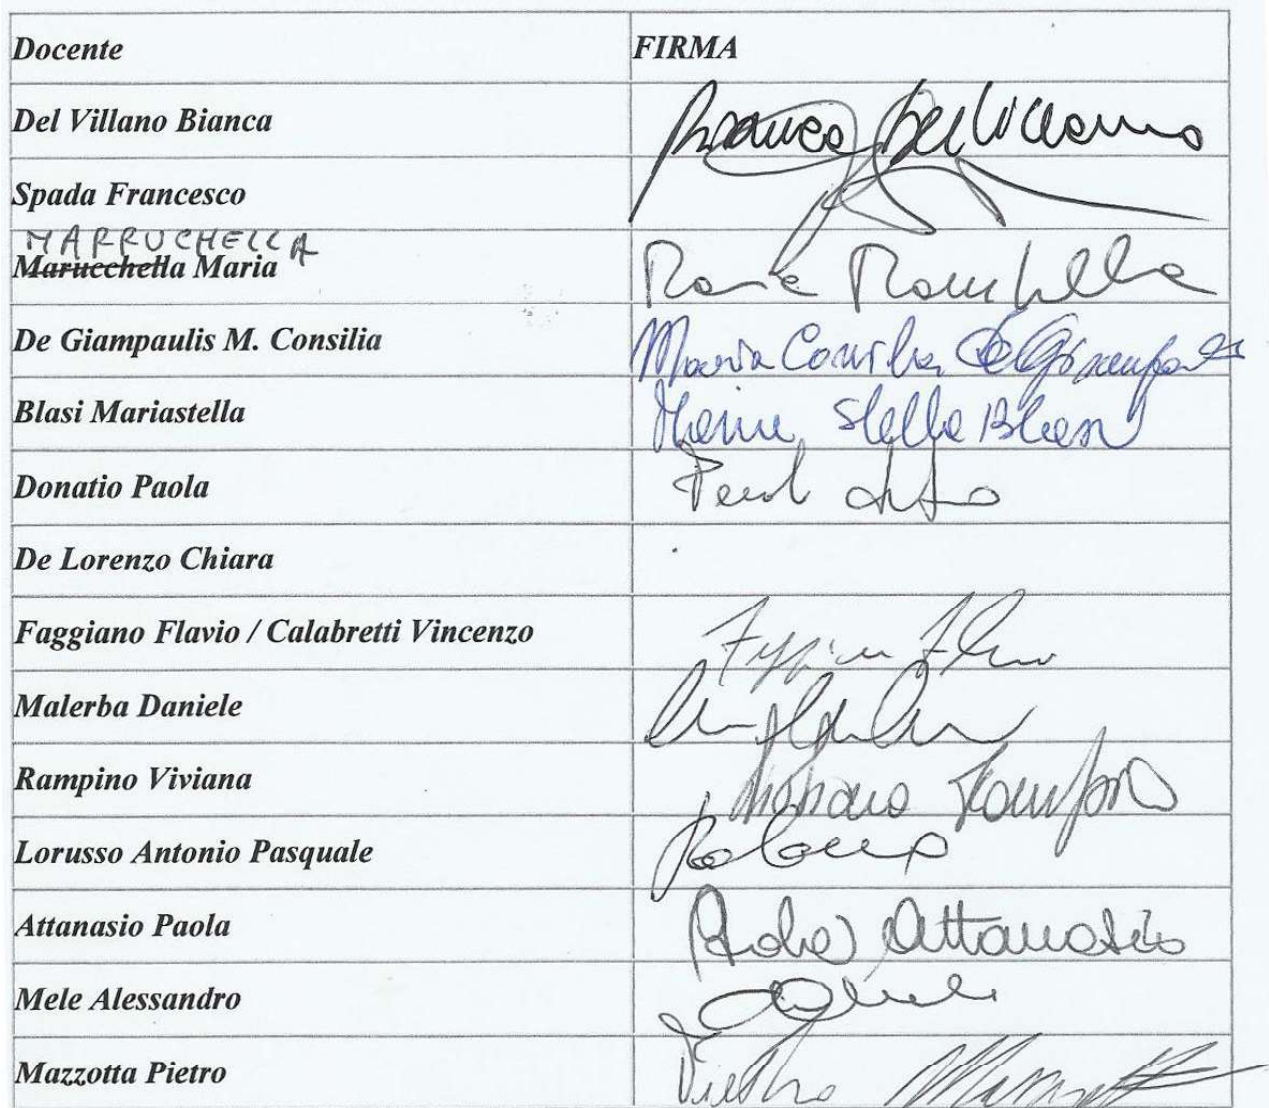 Docente FIRMA
Del Villano Bianca Bianca Del Villano
Spada Francesco
MARRUCHELLA
Marucchella Maria Maria Marruchella
De Giampaulis M. Consilia Maria Consilia De Giampaulis
Blasi Mariastella Maria Stella Blasi
Donatio Paola
De Lorenzo Chiara
Faggiano Flavio / Calabretti Vincenzo Faggiano Flavio
Malerba Daniele
Rampino Viviana Viviana Rampino
Lorusso Antonio Pasquale
Attanasio Paola Paola Attanasio
Mele Alessandro
Mazzotta Pietro Pietro Mazzotta